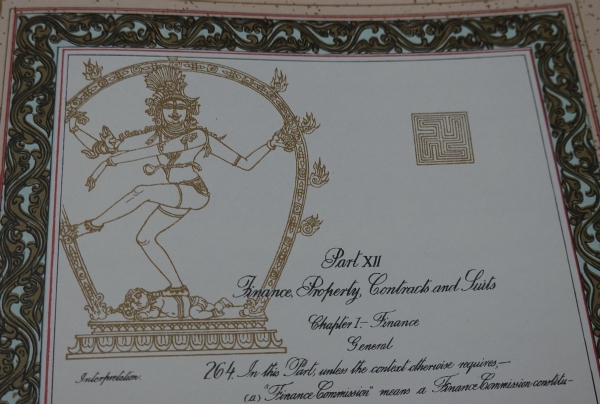 Part XII
Finance, Property, Contracts and Suits
Chapter I.— Finance
General
Interpretation.
264. In this Part, unless the context otherwise requires,—
(a) "Finance Commission" means a Finance Commission constitu-